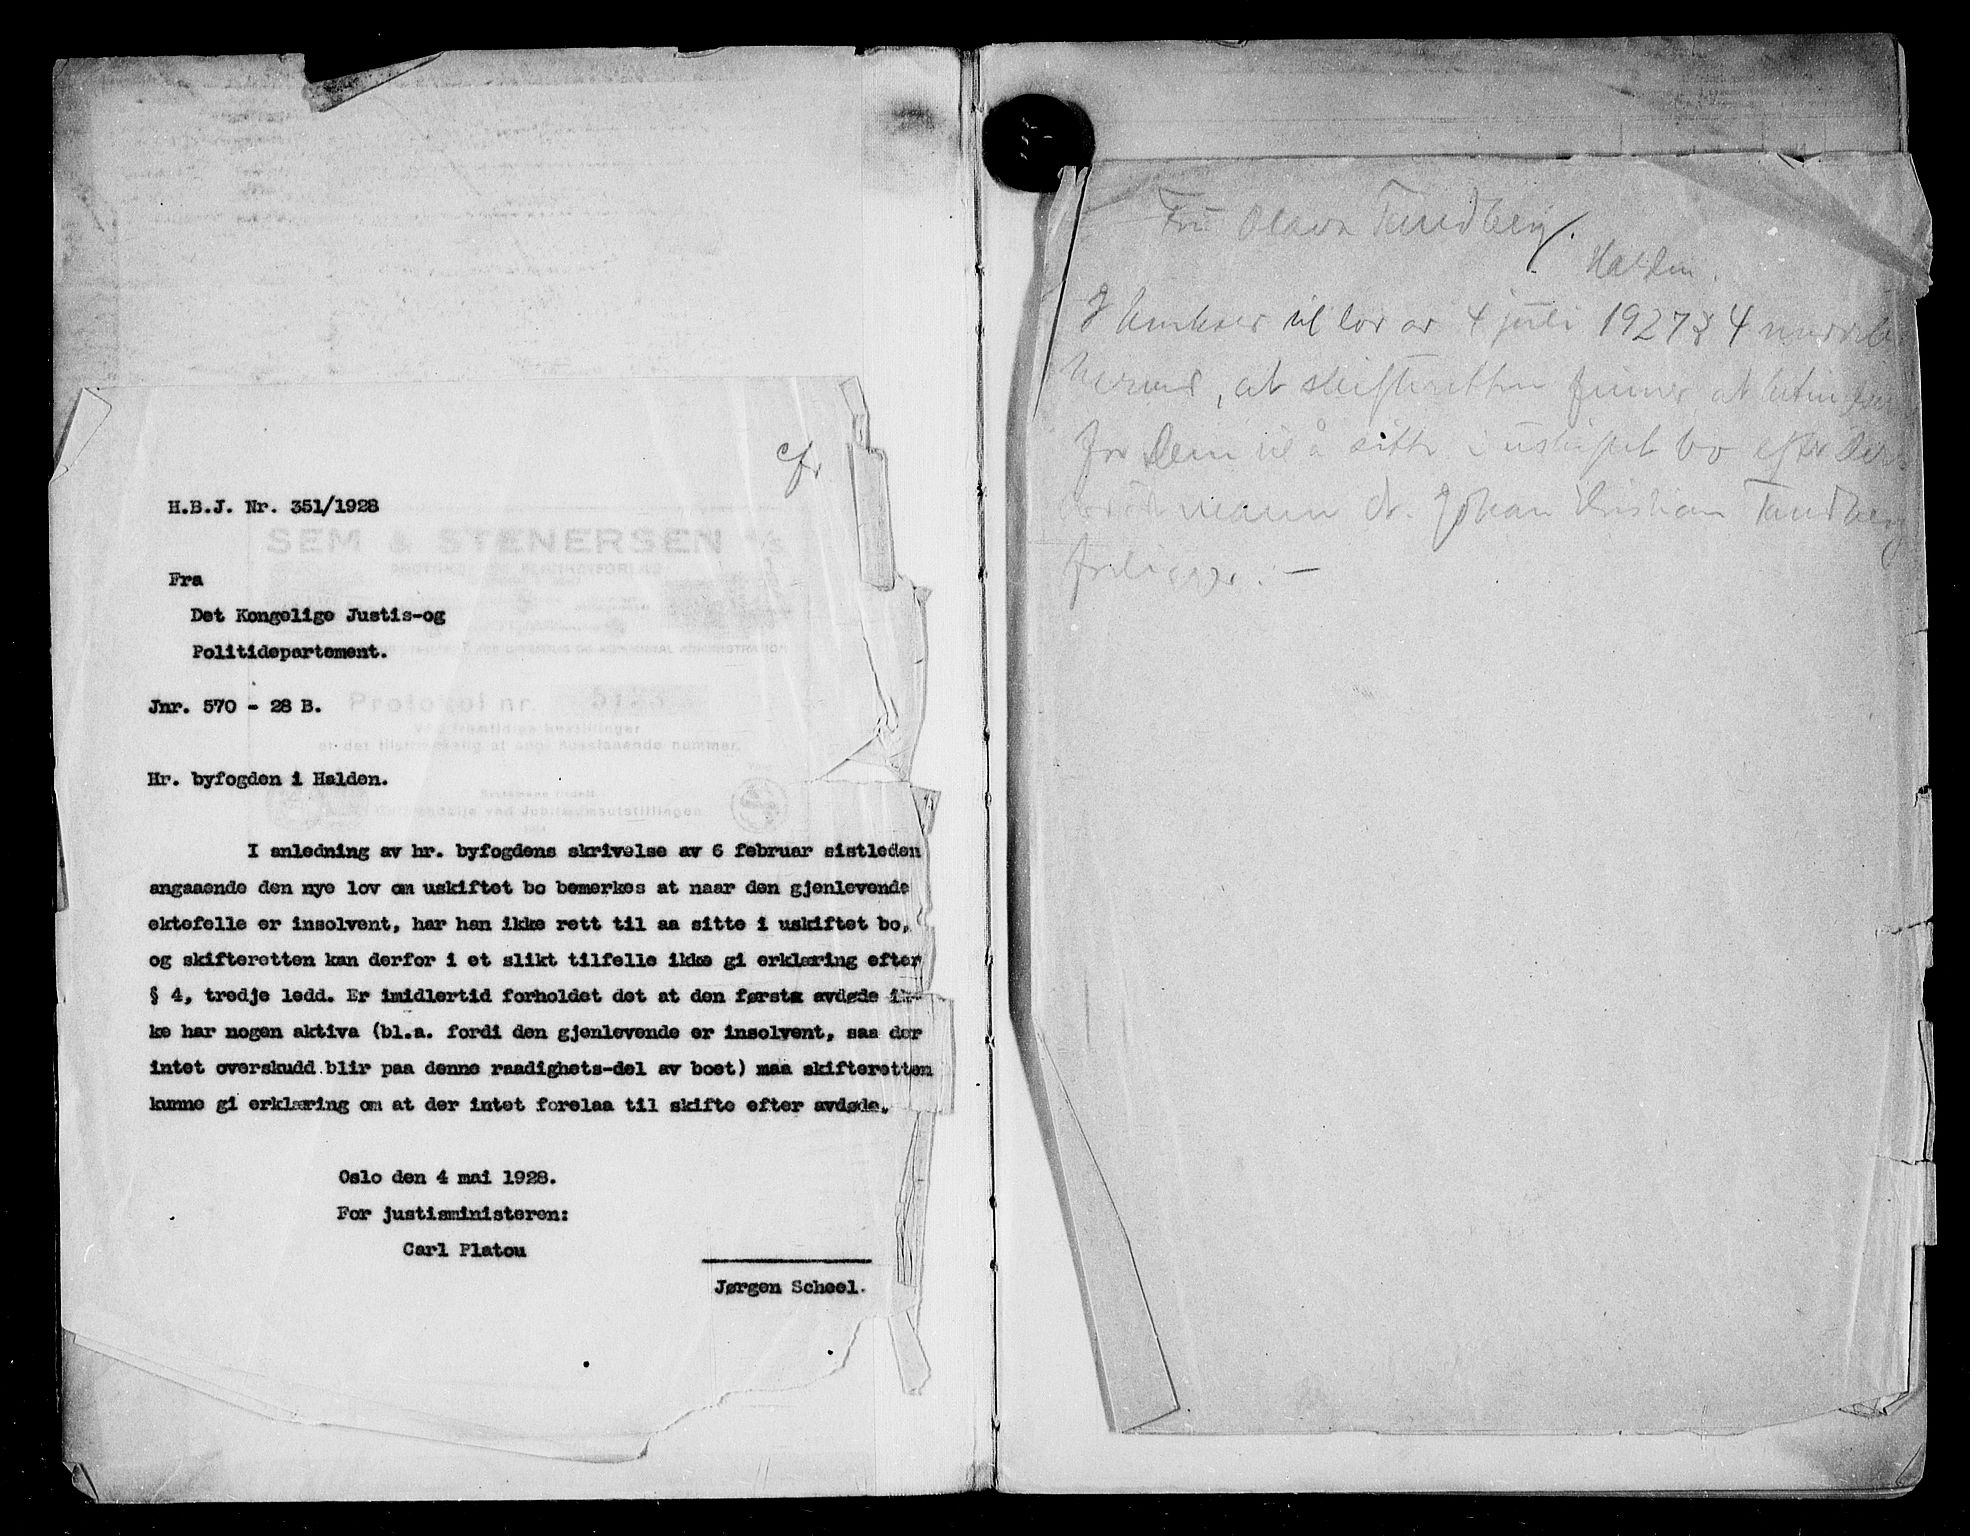 cfr
H.B.J. Nr. 351/1928
SEM & STENERSEN A/S
Fra
Det Kongelige Justis-og
Politidepartement.
Jnr. 570 - 28 B.
Protokol nr. 5123
Ved fremtidige bestillinger
er det tilstrækkelig at angi hosstaaende nummer.
Hr. byfogden i Halden.
ved Jubilæumsutstillingen
I anledning av hr. byfogdens skrivelse av 6 februar sistleden
angaaende den nye lov om uskiftet bo bemerkes at naar den gjenlevende
ektefelle er insolvent, har han ikke rett til aa sitte i uskiftet bo,
og skifteretten kan derfor i et slikt tilfelle ikke gi erklæring efter
§ 4, tredje ledd. Er imidlertid forholdet det at den første avdøde ik-
ke har nogen aktiva (bl.a. fordi den gjenlevende er insolvent, saa der
intet overskudd blir paa denne raadighets-del av boet) maa skifteretten
kunne gi erklæring om at der intet forelaa til skifte efter avdøde.
Oslo den 4 mai 1928.
For justisministeren:
Carl Platou
Jørgen Scheel.
Fru Olava Tandberg.
Halden.
I henhold til lov av 4 juli 1927 § 4
, at skifteretten finner, at
for Dem til å sitte i uskiftet bo efter Deres
mann Johan Kristian Tandberg
foreligger. —